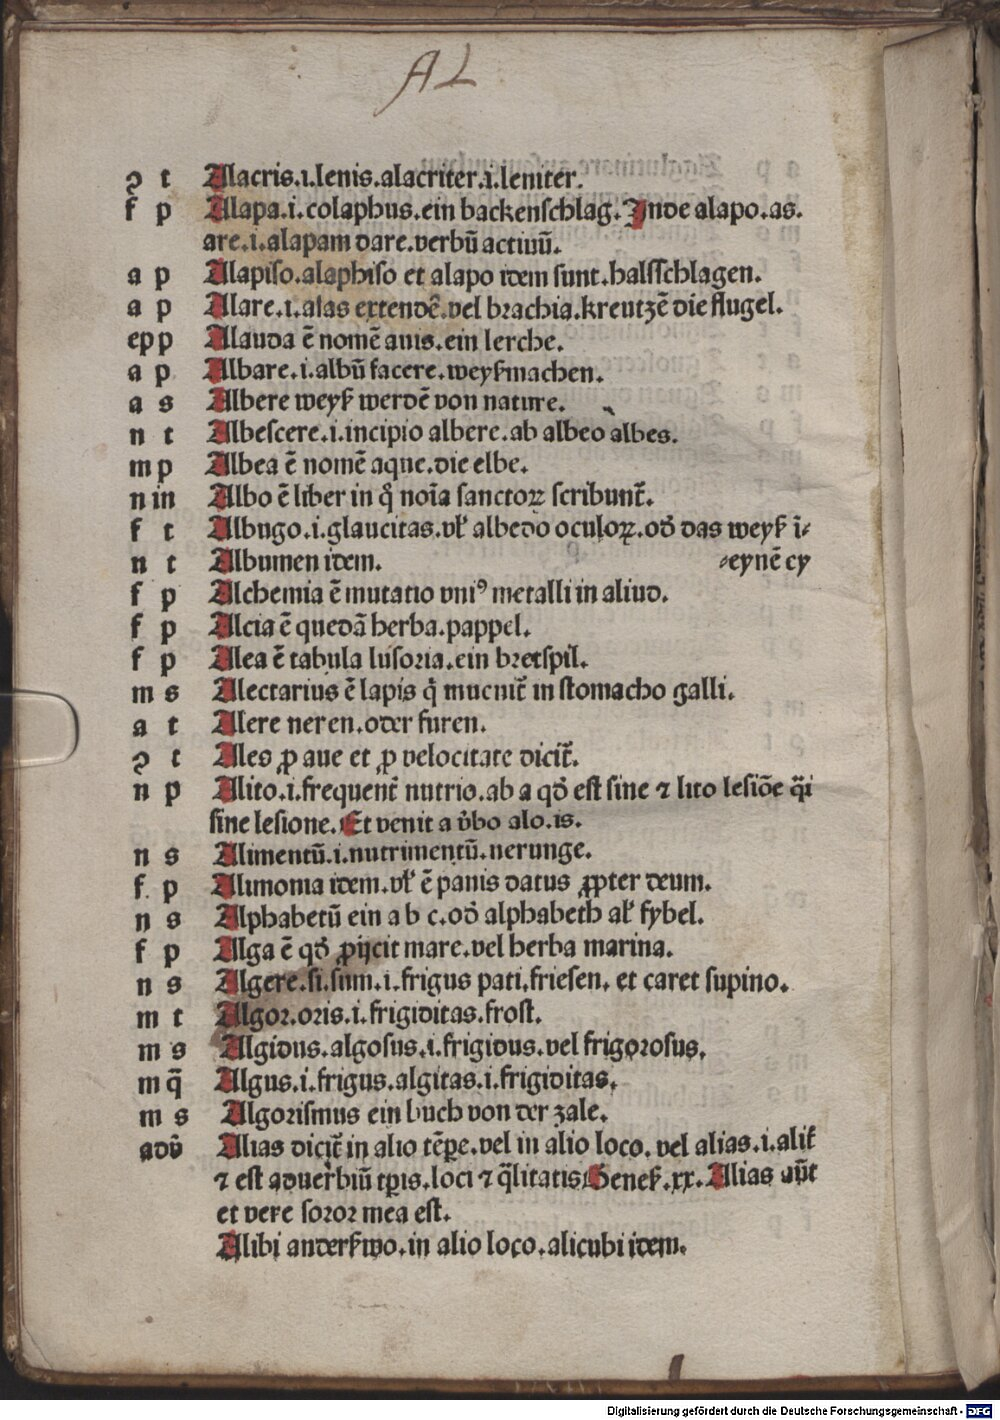 AL
ꝯ t Alacris.i.lenis.alacriter.i.leniter.
f p Alapa.i.colaphus.ein backenſchlag.Inde alapo.as.
are.i.alapam dare.verbū actiuū.
a p Alapiſo.alaphiſo et alapo idem ſunt.halſſchlagen.
a p Alare.i.alas extendē.vel brachia.kreutzē die flugel.
epp Alauda ē nomē auis.ein lerche.
a p Albare.i.albū facere.weyſzmachen.
a s Albere weyſz werdē von nature.
n t Albeſcere.i.incipio albere.ab albeo albes.
m p Albea ē nomē aque.die elbe.
n in Albo ē liber in q̊ noīa ſanctoꝝ ſcribunt̄.
f t Albugo.i.glaucitas.vl̓ albedo oculoꝝ.od̓ das weyſz ī⸗
n t Albumen idem. ⸗eynē ey
f p Alchemia ē mutatio vniꝰ metalli in aliud.
f p Alcia ē quedā herba.pappel.
f p Alea ē tabula luſoria.ein bretſpil.
m s Alectarius ē lapis q̇ inuenit̄ in ſtomacho galli.
a t Alere neren.oder furen.
ꝯ t Ales ꝓ aue et ꝓ velocitate dicit̄.
n p Alito.i.frequent̄ nutrio.ab a qd̓ eſt ſine ⁊ lito leſiōe q̄ſi
ſine leſione.Et venit a v̓bo alo.is.
n s Alimentū.i.nutrimentū.nerunge.
f. p Alimonia idem.vl̓ ē panis datus ꝓpter deum.
n s Alphabetū ein a b c.od̓ alphabeth al̓ fybel.
f p Alga ē qd̓ ꝓijcit mare.vel herba marina.
n s Algere.ſi.ſum.i.frigus pati.frieſen. et caret ſupino.
m t Algor.oris.i.frigiditas.froſt.
m s Algidus.algoſus.i.frigidus.vel frigoroſus.
m q̄ Algus.i.frigus.algitas.i.frigiditas.
m s Algoriſmus ein buch von der zale.
adv̓ Alias dicit̄ in alio tēꝑe.vel in alio loco. vel alias.i.alit̓
⁊ eſt aduerbiū tꝑis.loci ⁊ q̄litatis Geneſ.xx.Alias aūt
et vere ſoror mea eſt.
Alibi anderſzwo.in alio loco.alicubi idem.
Digitalisierung gefördert durch die Deutsche Forschungsgemeinschaft - DFG